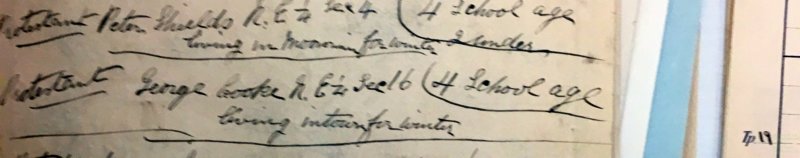 Protestant Peter Shields N. E ¼ Sec 4 (4 School age
living in Moosomin for winter 2 under
Protestant George Cooke N. E ¼ Sec 16 (4 School age
living in town for winter
Tp. 19